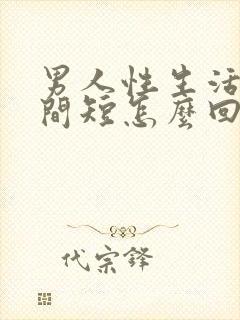 男人性生活
間短怎麼回
代宗鋒